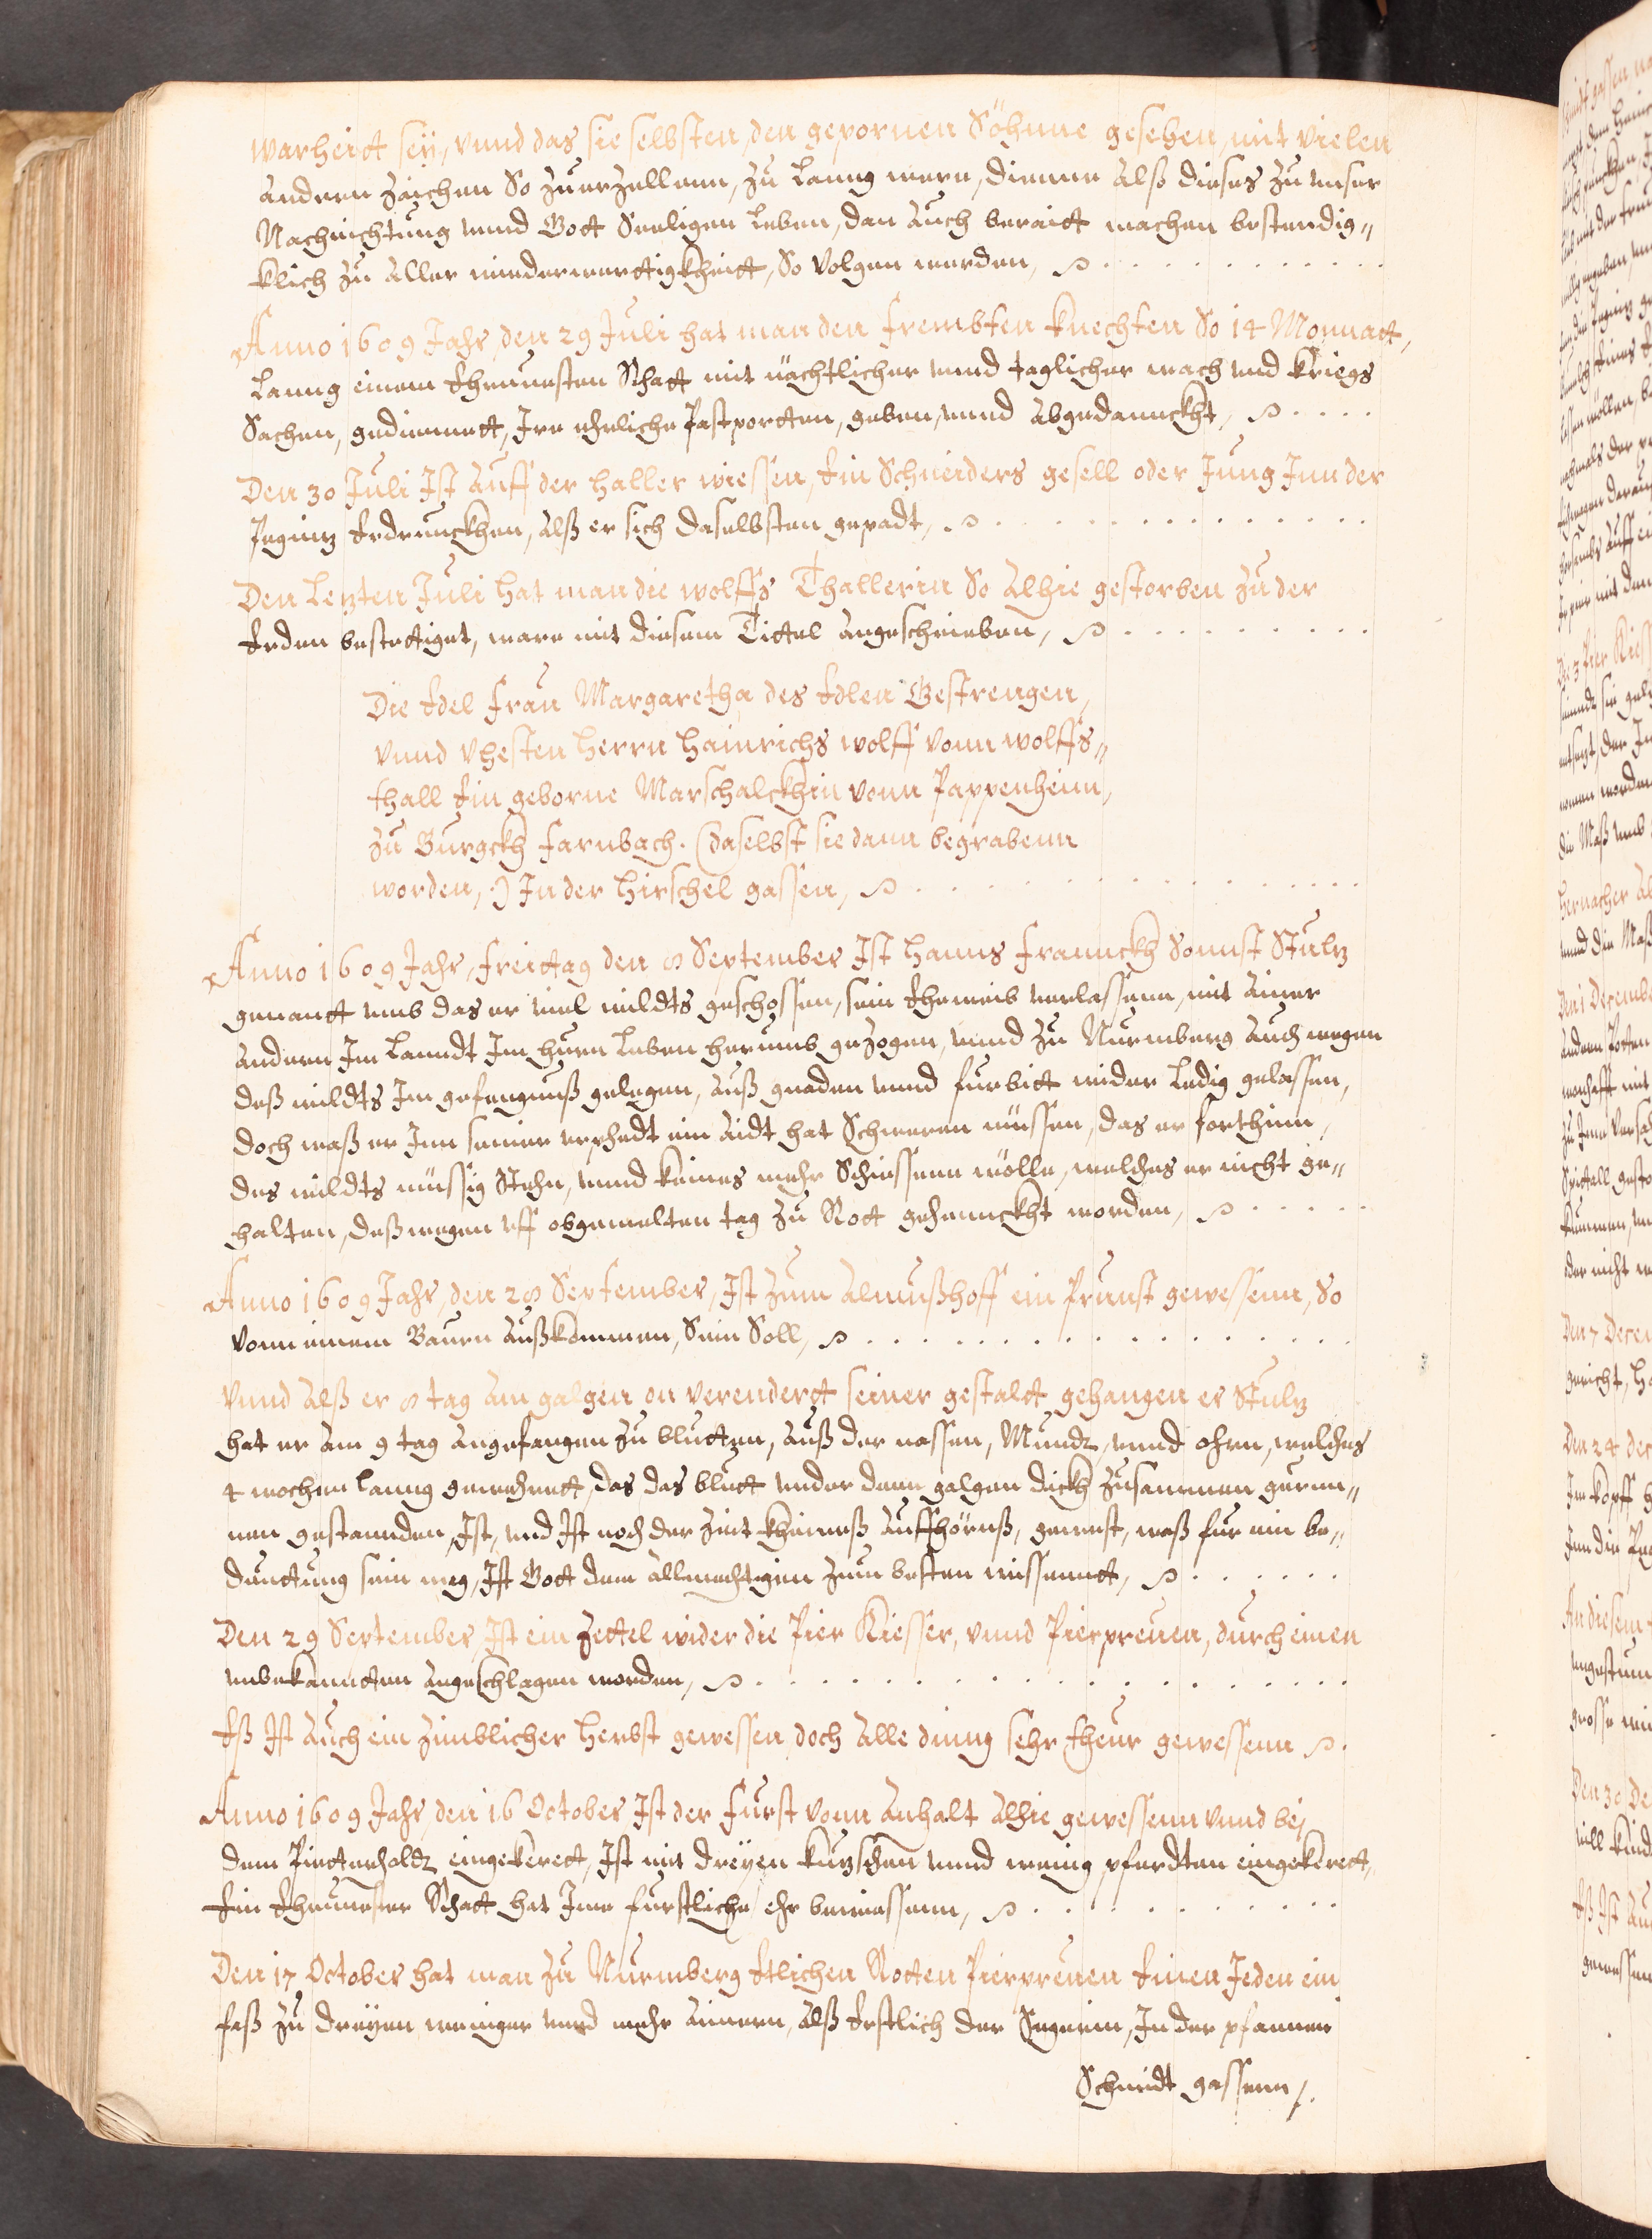 warheitt seÿ, vnnd das sie selbsten, den gepornen Söhnne gesehen, mit vielen
andern zaichen So zuerzellenn, zu lanng were, dienne also dieses zu vnser
Nachrichtung vnnd Gott Seeligen leben, den auch beraitt machen bestendig„
klich zu aller wiederwerttigkheitt, So volgen werden,
Anno 1609 Jahr, den 29 Juli hat man den frembten knechten So 14 Monnatt,
lanng einem Ehrnuesten Rhatt mit nächtlicher vnnd taglicher wach vnd kriegs
Sachen, gediennett, Ire ehrliche Pastportten, geben, vnnd abgedannckht,
Den 30 Juli Ist auff der haller wiessen, Ein Schneiders gesell oder Jung Inn der
Pegnitz Erdrunckhen, alß er sich daselbsten gepadt,
Den letzten Juli hat man die wolffs Thallerin So alhie gestorben zu der
Erden bestettiget, ware mit diesem Tittel angeschrieben,
Die Edel Frau Margaretha des Edlen Gestrengen,
vnnd vhesten herrn hainrichs wolff vonn wolffs„
thall Ein geborne Marschalckhin vonn Pappenheim,
zu Burgckh farnbach. (daselbst sie dann begrabenn
worden,) In der hirschel gassen,
Anno 1609 Jahr, freittag den 8 September Ist hanns franckh Sonnst Stultz
genantt vmb das er viel wildts geschossen, sein Eheweib verlassenn, mit ainer
andern Im lanndt Im huren leben herumb gezogen, vnnd zu Nurmberg auch wegen
deß wildts Im gefengnuß gelegen, auß gnaden vnnd furbitt wider ledig gelassen,
doch waß er Inn seiner vrphedt ein aidt hat Schweren müssen, das er forthinn,
des wildts müssig Stehn, vnnd keines mehr Schiessenn wölle, welches er nicht ge„
halten, deßwegen vff obgemelten tag zu Rott gehennckht worden,
Anno 1609 Jahr, den 28 September, Ist zum Almußhoff ein Prunst gewessenn, So
vonn einem Baurn außkommen, Sein Soll,
vnnd alß er 8 tag am galgen on verendertt seiner gestaltt gehangen er Stultz
hat er am 9 tag angefangen zu bluttzen, auß der nassen, Mundt, vnnd ohrn, welches
4 wochen lanng gewehrett, das das blutt vnder dem galgen dickh zusammen gerun„
nen gestannden, Ist, vnd Ist noch der zeit kheineß auffhörnß, gewest, waß fur ein be„
deuttung sein mag, Ist Gott dem allmechtigen zum besten wissennt,
Den 29 September, Ist ein zettel wider die Pier Kiesser, vnnd Pierpreuen, durch einen
vnbekanntten angeschlagen worden,
Eß Ist auch ein zimblicher herbst gewessen, doch alle ding sehr theur gewessenn
Anno 1609 Jahr, den 16 October, Ist der Furst vonn Anhalt alhie gewessenn vnnd beÿ
dem Pitterholdt eingekerett, Ist mit dreÿen kutzschen vnnd wenig pferdten eingekerett,
Ein Ehrnuester Rhatt hat Ime furstliche ehr bewiessenn,
Den 17 October hat man zu Nurmberg Etlichen Rotten Pierpreuen Einen Jeden ein
faß zu dreÿen weniger vnnd mehr aimern, alß Erstlich der, In der pfannen
Schmidt gassenn